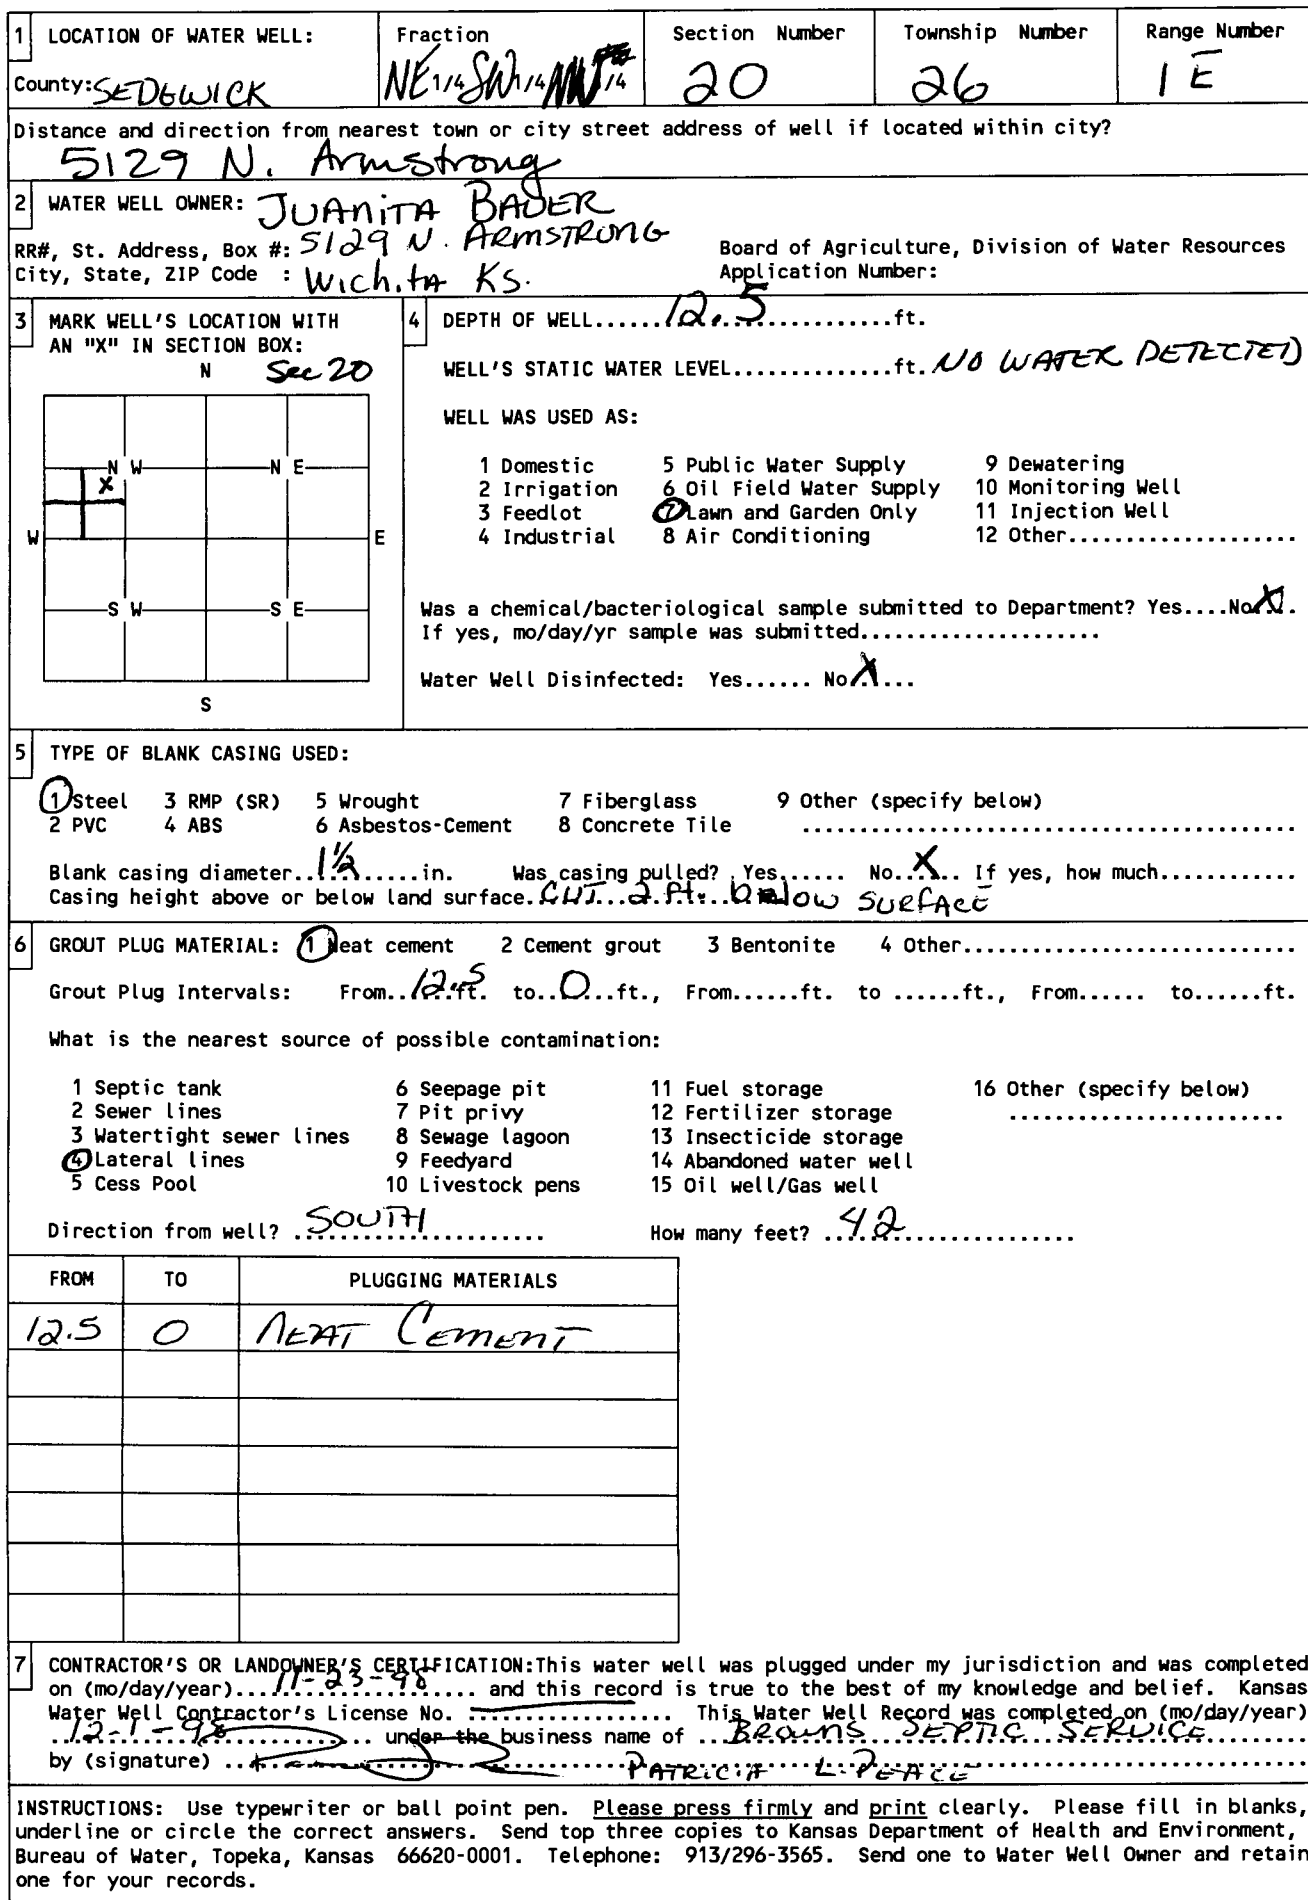 1 LOCATION OF WATER WELL: Fraction Section Number Township Number Range Number
County: SEDGWICK NE 1/4 SW 1/4 NW 1/4 20 26 1 E
Distance and direction from nearest town or city street address of well if located within city?
5129 N. Armstrong
2 WATER WELL OWNER: JUANITA BAUER
RR#, St. Address, Box #: 5129 N. ARMSTRONG Board of Agriculture, Division of Water Resources
City, State, ZIP Code : Wichita KS. Application Number:
3 MARK WELL'S LOCATION WITH
AN "X" IN SECTION BOX:
N Sec 20
N W N E
X
W E
S W S E
S
4 DEPTH OF WELL......12.5...............ft.
WELL'S STATIC WATER LEVEL..............ft. NO WATER DETECTED
WELL WAS USED AS:
1 Domestic 5 Public Water Supply 9 Dewatering
2 Irrigation 6 Oil Field Water Supply 10 Monitoring Well
3 Feedlot 7 Lawn and Garden Only 11 Injection Well
4 Industrial 8 Air Conditioning 12 Other...................
Was a chemical/bacteriological sample submitted to Department? Yes....No.X..
If yes, mo/day/yr sample was submitted.....................
Water Well Disinfected: Yes...... No X...
5 TYPE OF BLANK CASING USED:
1 Steel 3 RMP (SR) 5 Wrought 7 Fiberglass 9 Other (specify below)
2 PVC 4 ABS 6 Asbestos-Cement 8 Concrete Tile ...........................................
Blank casing diameter..1 1/2......in. Was casing pulled? Yes...... No..X... If yes, how much............
Casing height above or below land surface. CUT...2 ft...below SURFACE
6 GROUT PLUG MATERIAL: 1 Neat cement 2 Cement grout 3 Bentonite 4 Other.............................
Grout Plug Intervals: From..12.5 ft. to..0...ft., From......ft. to ......ft., From...... to......ft.
What is the nearest source of possible contamination:
1 Septic tank 6 Seepage pit 11 Fuel storage 16 Other (specify below)
2 Sewer lines 7 Pit privy 12 Fertilizer storage ........................
3 Watertight sewer lines 8 Sewage lagoon 13 Insecticide storage
4 Lateral lines 9 Feedyard 14 Abandoned water well
5 Cess Pool 10 Livestock pens 15 Oil well/Gas well
Direction from well? SOUTH How many feet? 42
FROM TO PLUGGING MATERIALS
12.5 0 NEAT CEMENT
7 CONTRACTOR'S OR LANDOWNER'S CERTIFICATION:This water well was plugged under my jurisdiction and was completed
on (mo/day/year)....11-23-98........ and this record is true to the best of my knowledge and belief. Kansas
Water Well Contractor's License No. .................. This Water Well Record was completed on (mo/day/year)
12-1-98 under the business name of ...BROWNS SEPTIC SERVICE
by (signature) PATRICIA L. PEACE
INSTRUCTIONS: Use typewriter or ball point pen. Please press firmly and print clearly. Please fill in blanks,
underline or circle the correct answers. Send top three copies to Kansas Department of Health and Environment,
Bureau of Water, Topeka, Kansas 66620-0001. Telephone: 913/296-3565. Send one to Water Well Owner and retain
one for your records.